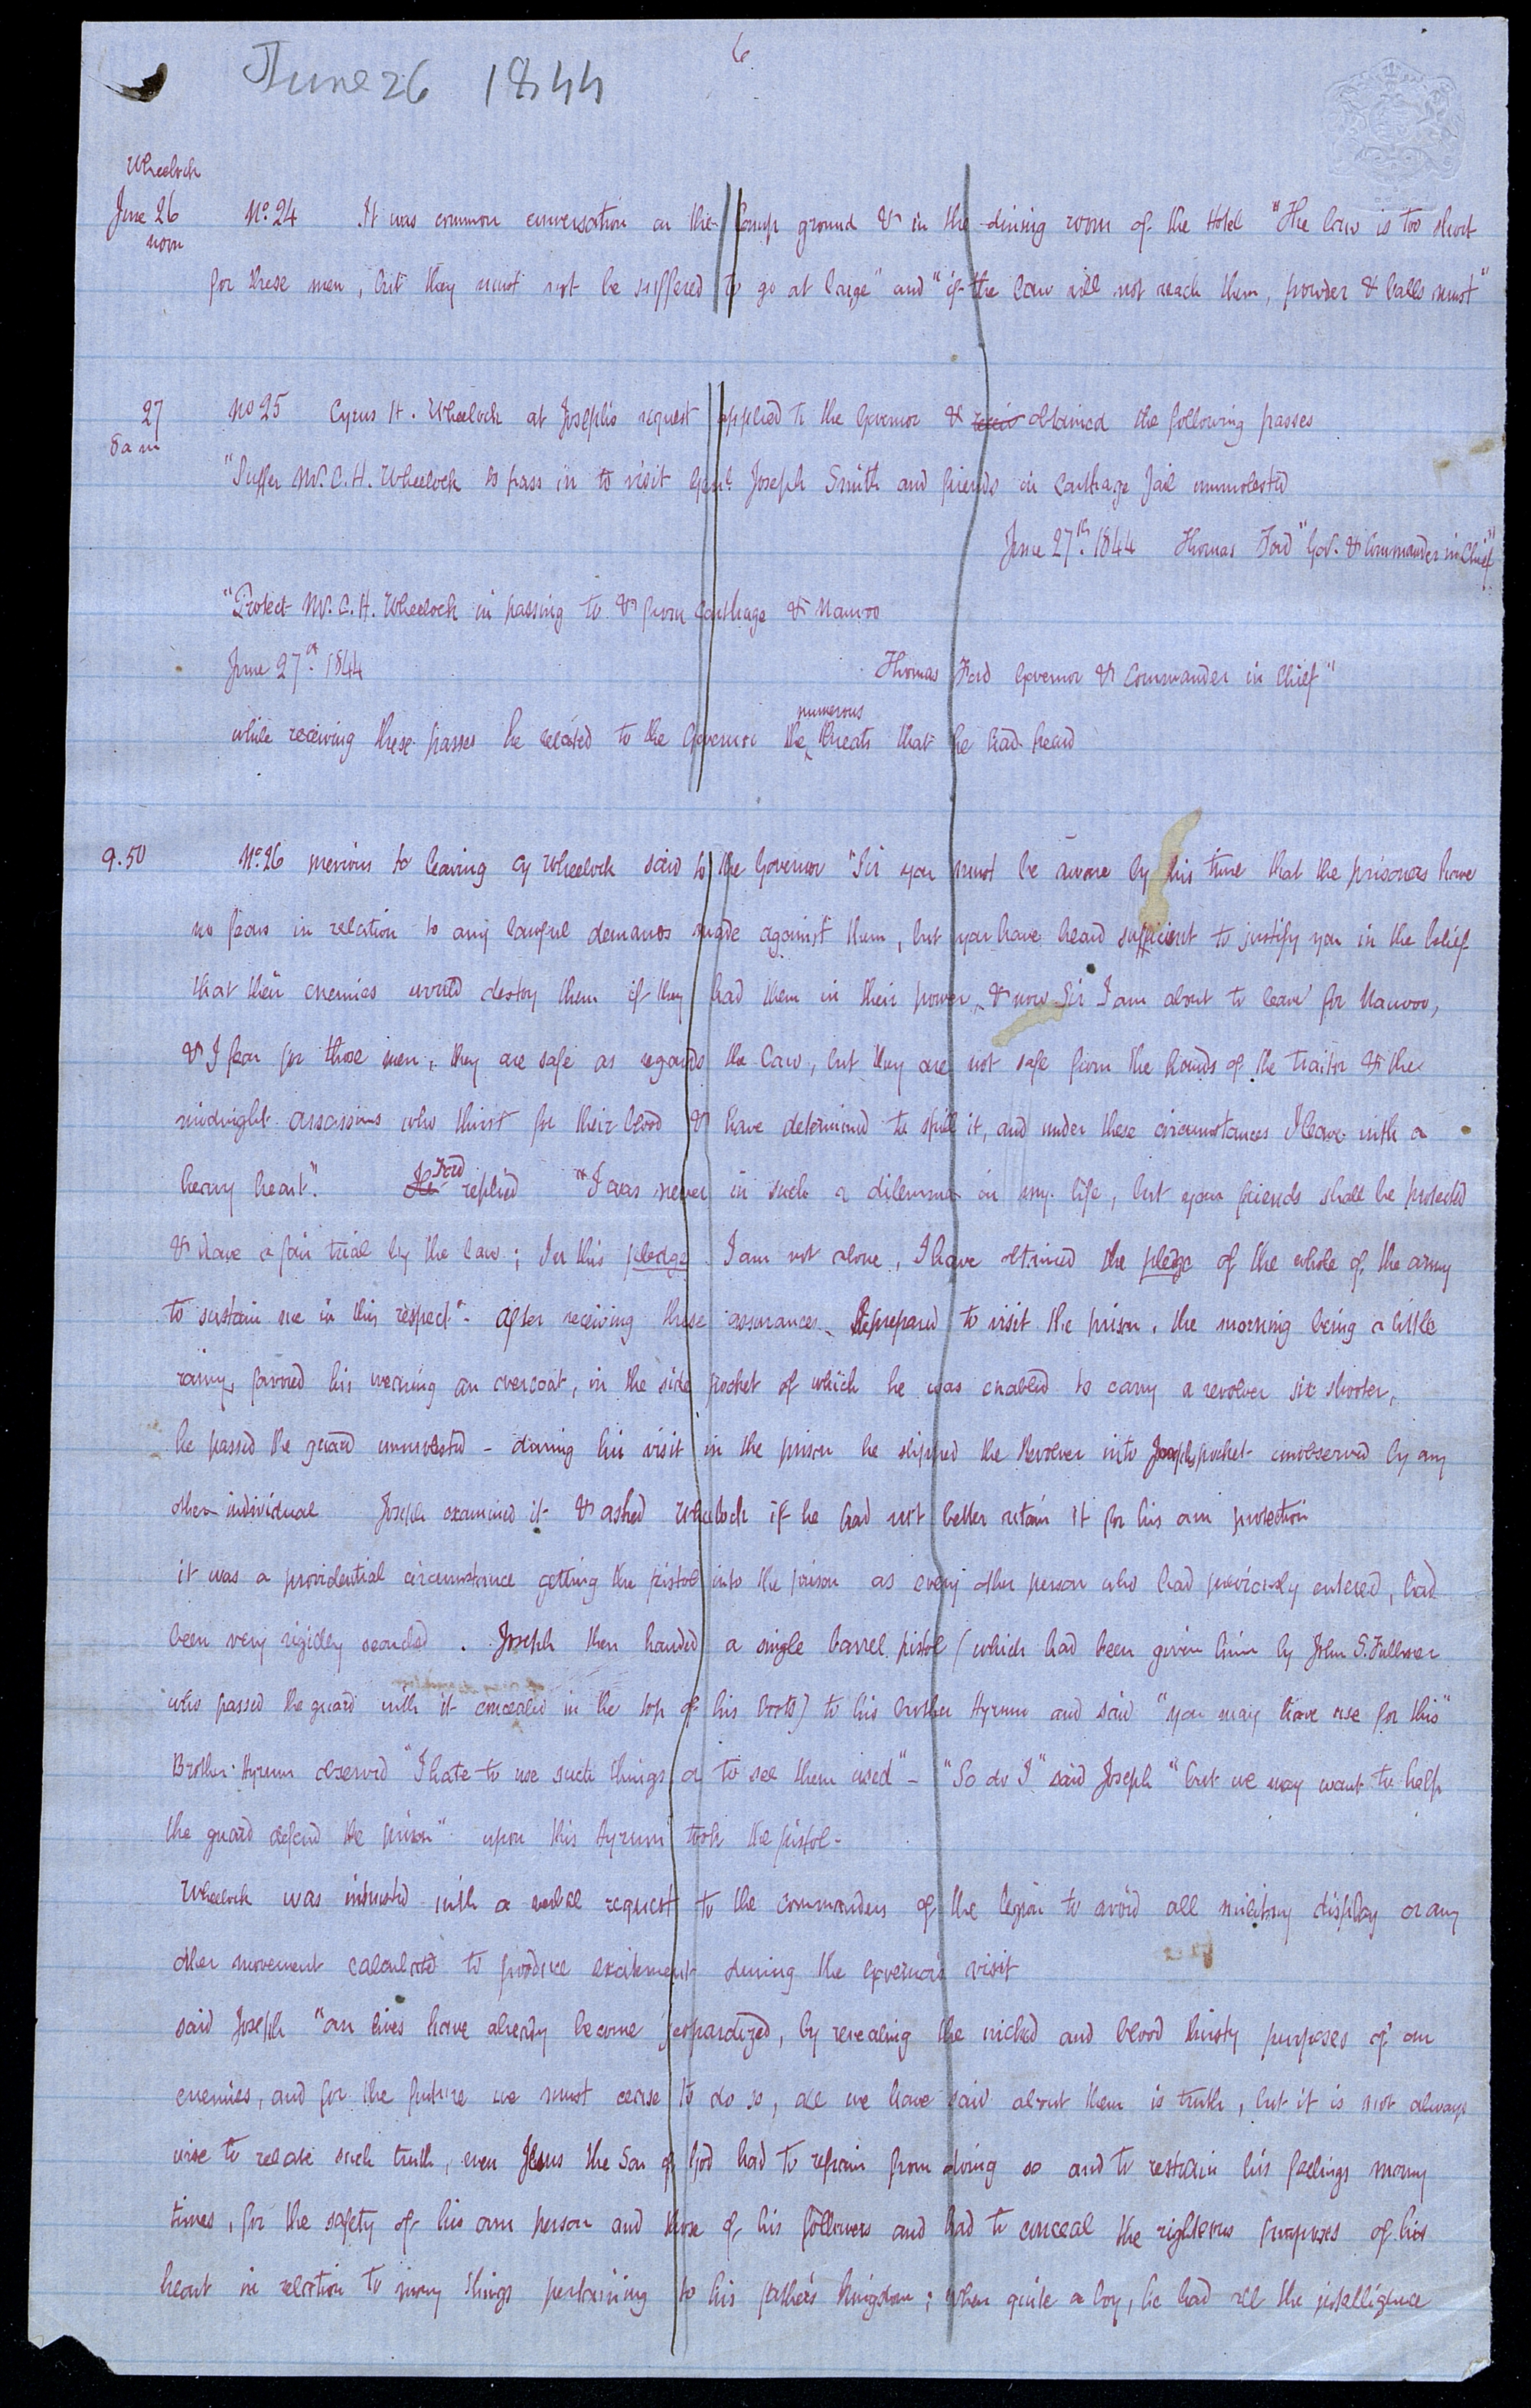 6
June 26 1844
Wheelock
June 26 No. 24 It was common conversation on the Camp ground & in the dining room of the Hotel "The law is too short
noon
for these men, but they must not be suffered to go at large" and "if the law will not reach them, powder & balls must"
27 No 25 Cyrus H. Wheelock at Josephs request applied to the Governor & receiv obtained the following passes
8 a m
"Suffer Mr. C. H. Wheelock to pass in to visit Genl. Joseph Smith and friends in Carthage Jail unmolested
June 27th. 1844 Thomas Ford "Gov. & Commander in Chief"
"Protect Mr. C. H. Wheelock in passing to & from Carthage & Nauvoo
June 27th. 1844 Thomas Ford Governor & Commander in Chief"
numerous
while receiving these passes he related to the Governor the threats that he had heard
9.50 No. 26 Previous to leaving Cy Wheelock said to the Governor "Sir you must be aware by this time that the prisoners have
no fears in relation to any lawful demands made against them, but you have heard sufficient to justify you in the belief
that their enemies would destroy them if they had them in their power, & now Sir I am about to leave for Nauvoo,
& I fear for those men, they are safe as regards the law, but they are not safe from the hands of the traitor & the
midnight assassins who thirst for their blood & have determined to spill it, and under these circumstances I leave with a
heavy heart". He Ford replied "I was never in such a dilemma in my life, but your friends shall be protected
& have a fair trial by the law; In this pledge I am not alone, I have obtained the pledge of the whole of the army
to sustain me in this respect". After receiving these assurances He prepared to visit the prison, the morning being a little
rainy, favored his wearing an overcoat, in the side pocket of which he was enabled to carry a revolver six shooter,
he passed the guard unmolested - during his visit in the prison he slipped the Revolver into Josephs pocket unobserved by any
other individual Joseph examined it & asked Wheelock if he had not better retain it for his own protection
it was a providential circumstance getting the pistol into the prison as every other person who had previously entered, had
been very rigidly searched. Joseph then handed a single barrel pistol (which had been given him by John S. Fullmer
who passed the guard with it concealed in the top of his boots) to his brother Hyrum and said "you may have use for this"
Brother Hyrum observed "I hate to use such things or to see them used" - "So do I" said Joseph "but we may want to help
the guard defend the prison" upon this Hyrum took the pistol -
Wheelock was intrusted with a verbal request to the commanders of the legion to avoid all military display or any
other movement calculated to produce excitement during the Governor's visit
said Joseph "our lives have already become jeopardized, by revealing the wicked and blood thirsty purposes of our
enemies, and for the future we must cease to do so, all we have said about them is truth, but it is not always
wise to relate such truth, even Jesus the Son of God had to refrain from doing so and to restrain his feelings many
times, for the safety of his own person and those of his followers and had to conceal the righteous purposes of his
heart in relation to many things pertaining to his father's kingdom; when quite a boy, he had all the intelligence